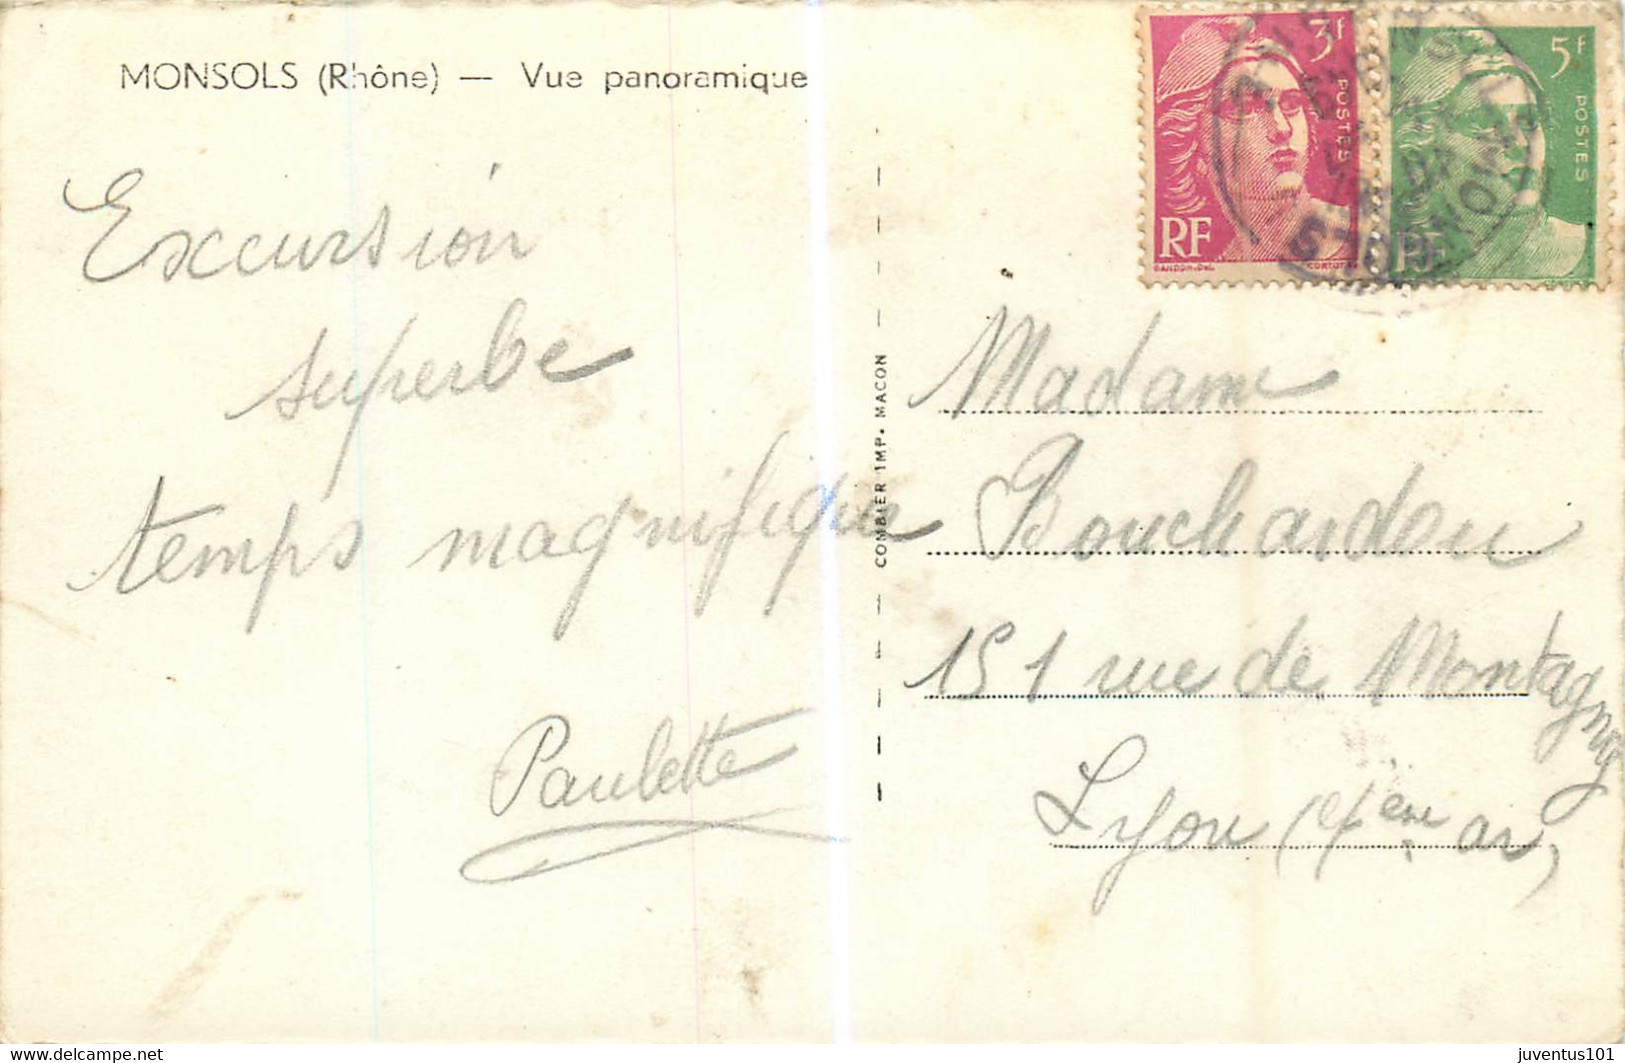 MONSOLS (Rhône) — Vue panoramique
Excursion
superbe
temps magnifique
Paulette
COMBIER IMP. MACON
3f
POSTES
RF
GANDON-DEL.
CORTOT
5f
POSTES
RF
MONSOLS
Madame
Bouchardon
151 rue de Montagny
Lyon (4ème ar)
juventus101